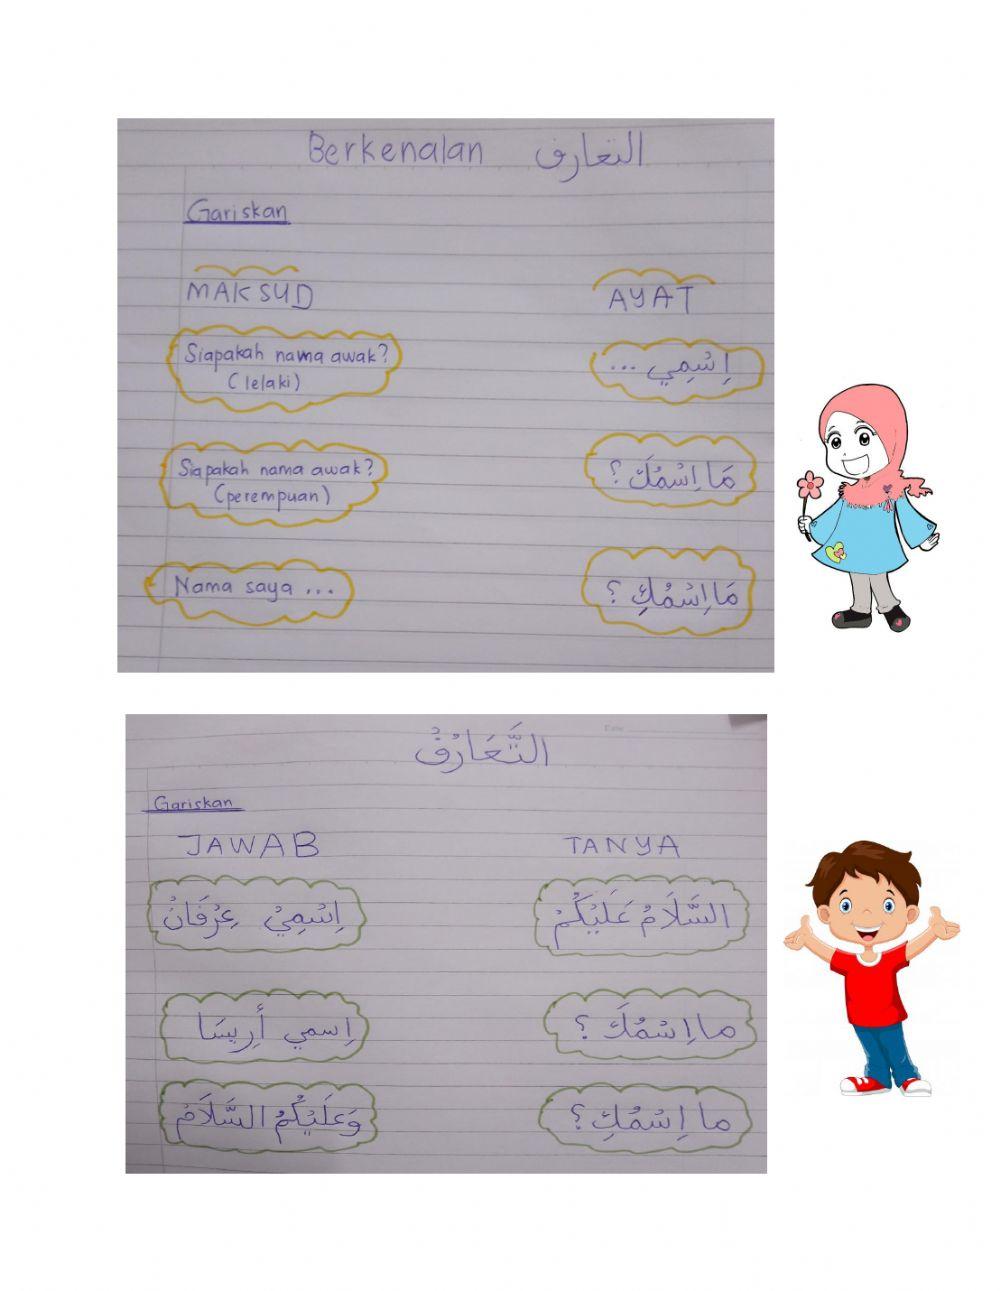 Berkenalan التعارف
Gariskan
MAKSUD AYAT
Siapakah nama awak?
(lelaki)
اِسْمِي ...
Siapakah nama awak?
(perempuan)
مَا اِسْمُكَ ؟
Nama saya ...
مَا اِسْمُكِ ؟
التَّعَارُفُ
Gariskan
JAWAB TANYA
اِسْمِيْ عِرْفَانْ السَّلَامُ عَلَيْكُمْ
اِسمي أَرِيسَا ما اِسْمُكَ ؟
وَعَلَيْكُمُ السَّلَامْ ما اِسْمُكِ ؟